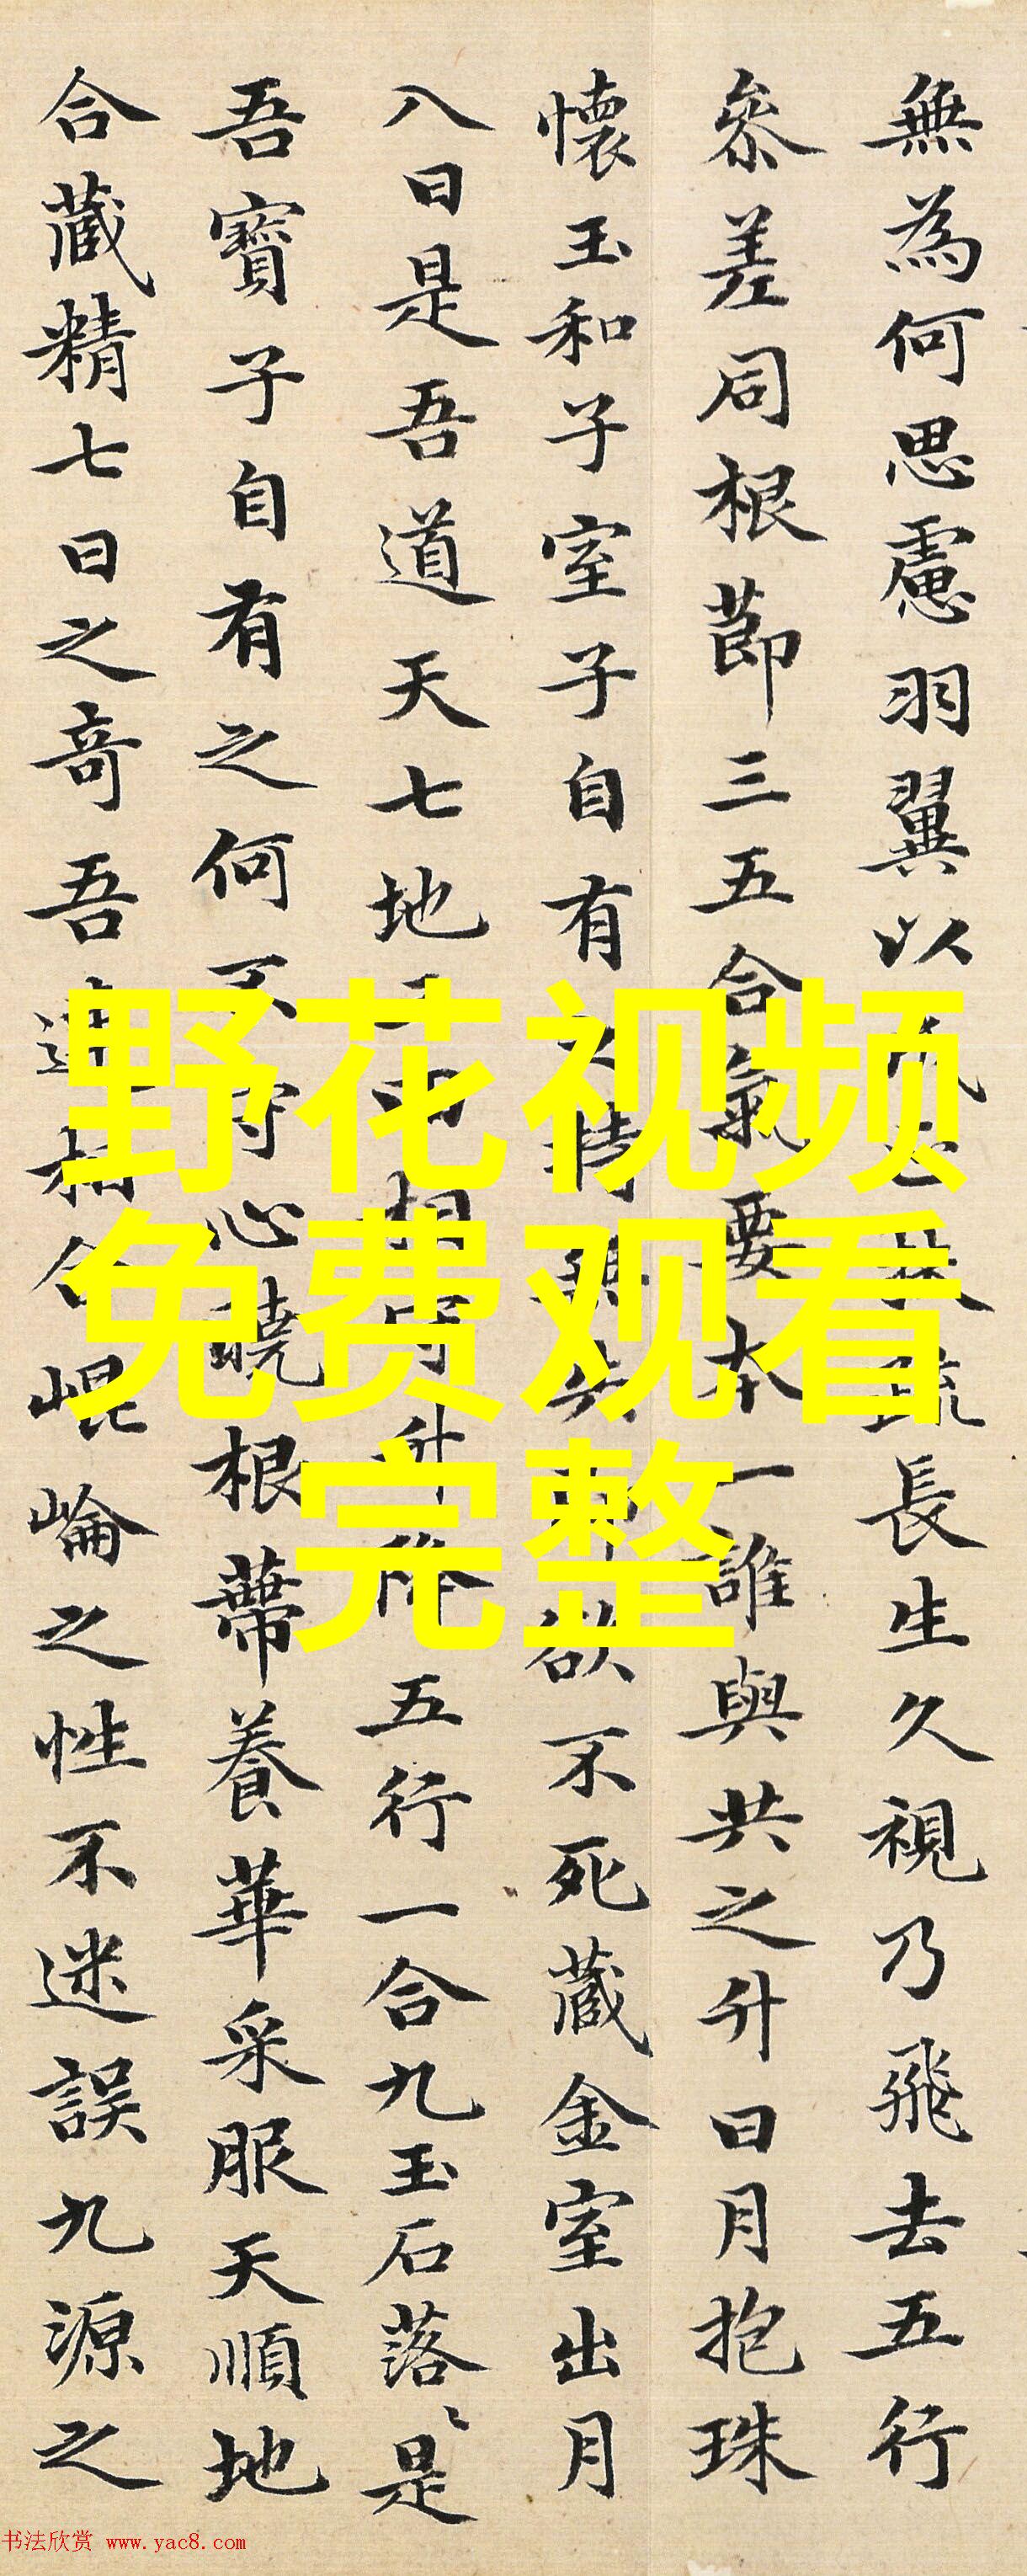 無為何思慮羽翼以長生久視乃飛去五行
參差同根莭三五合氣要本一誰與共之升日月抱珠
懷玉和子室子自有欲不死藏金室出月
八日是吾道天七地相升五行一合九玉石落〻是
吾寶子自有之何不守心曉根蔕養華采服天順地
合藏精七日之奇吾連相合崐崘之性不迷誤九源之
野花视频
免费观看
完整
书法欣赏 www.yac8.com